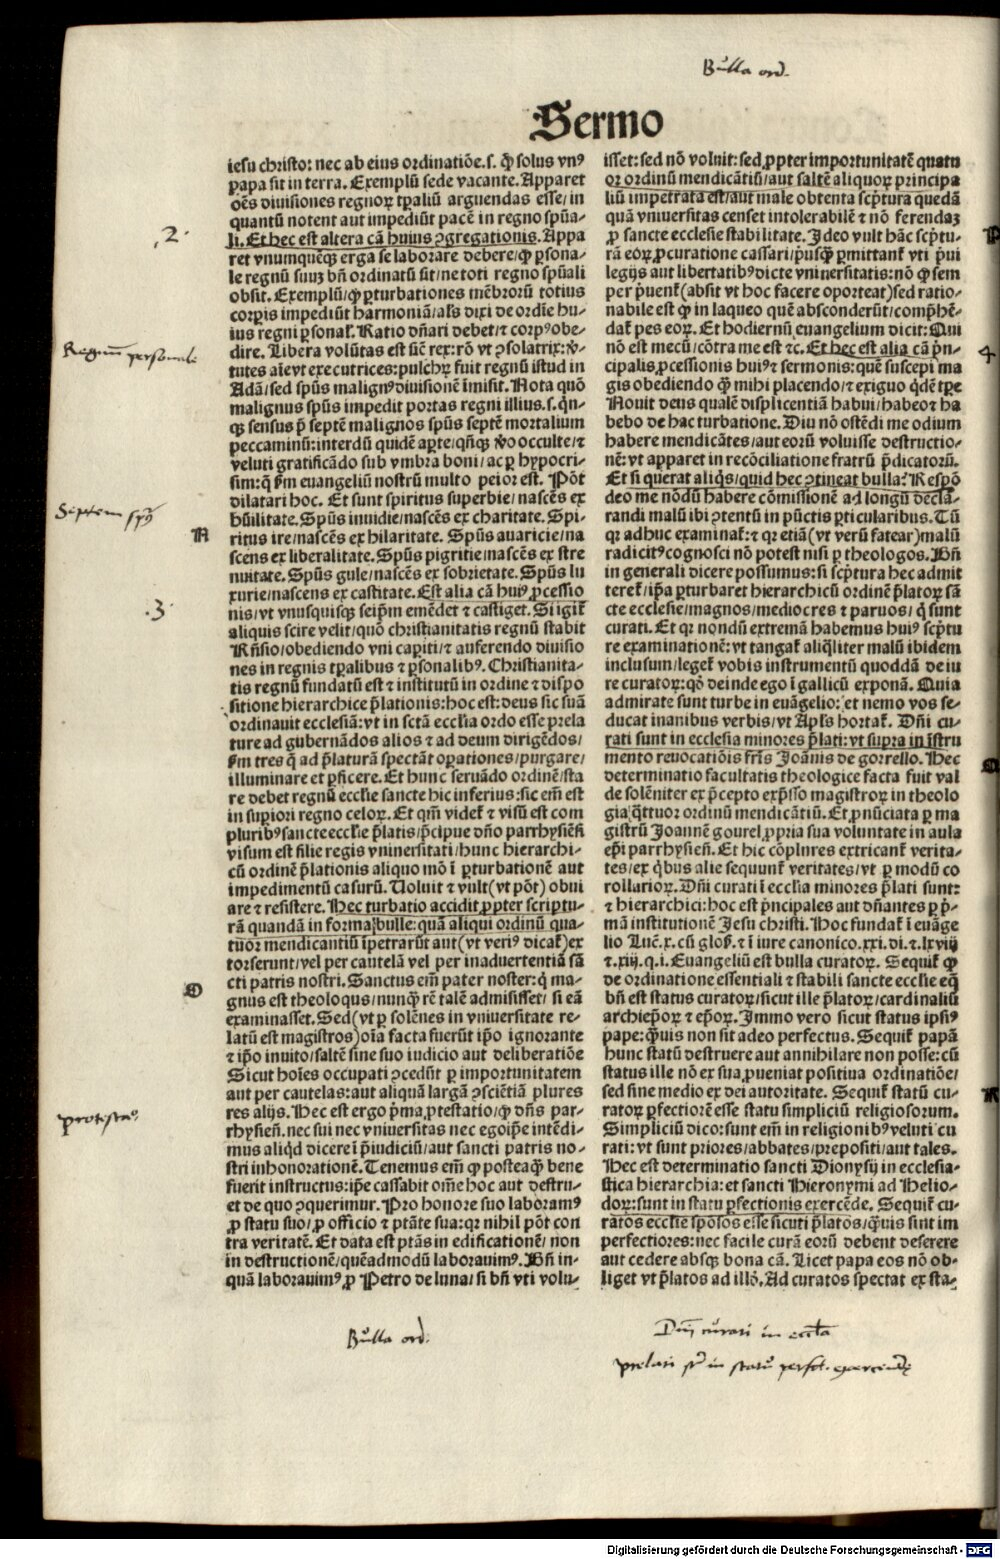 Bulla ord.
Sermo
iesu christo: nec ab eius ordinatiõe.s. ꝙ̃ solus vnꝰ
papa sit in terra. Exemplũ sede vacante. Apparet
oẽs diuisiones regnoꝝ tp̃aliũ arguendas esse/ in
quantũ notent aut impediũt pacẽ in regno spũa-
li. Et hec est altera cã huius ꝯgregationis. Appa
.2.
ret vnumquẽqꝫ erga se laborare debere/ ꝙ ꝑsona-
le regnũ suuꝫ bñ ordinatũ sit/ ne toti regno spũali
obsit. Exemplũ/ ꝙ ꝑturbationes mẽbrorũ totius
corꝑis impediũt harmoniã/ als̃ dixi de ordĩe hu-
ius regni ꝑsonal̃. Ratio dñari debet/ ⁊ corpꝰ obe-
dire. Libera volũtas est sic̃ rex: rõ vt ꝯsolatrix: v̾-
Regnum personale
tutes aĩe vt executrices: pulchꝝ fuit regnũ istud in
Adã/ sed spũs malignꝰ diuisionẽ ĩmisit. Nota quõ
malignus spũs impedit portas regni illius.s. qñ-
qꝫ sensus ꝑ septẽ malignos spũs septẽ mortalium
peccaminũ: interdũ quidẽ aꝑte/ qñqꝫ v̾o occulte/ ⁊
veluti gratificãdo sub vmbra boni/ ac ꝑ hypocri-
sim: q̃ ẜm euangeliũ nostrũ multo peior est. Põt
dilatari hoc. Et sunt spiritus superbie/ nascẽs ex
Septem spũs
hũilitate. Spũs inuidie/ nascẽs ex charitate. Spi-
N
ritus ire/ nascẽs ex hilaritate. Spũs auaricie/ na
scẽns ex liberalitate. Spũs pigritie/ nascẽs ex stre
nuitate. Spũs gule/ nascẽs ex sobrietate. Spũs lu
xurie/ nascens ex castitate. Est alia cã huiꝰ ꝓcessio
.3.
nis/ vt vnusquisqꝫ seip̃m emẽdet ⁊ castiget. Si igit᷑
aliquis scire velit/ quõ christianitatis regnũ stabit
Rñsio/ obediendo vni capiti/ ⁊ auferendo diuisio
nes in regnis tp̃alibus ⁊ ꝑsonalibꝰ. Christianita-
tis regnũ fundatũ est ⁊ institutũ in ordine ⁊ dispo
sitione hierarchice p̃lationis: hoc est: deus sic suã
ordinauit ecclesiã: vt in sctã ecclĩa ordo esse prela
ture ad gubernãdos alios ⁊ ad deum dirigẽdos/
ẜm tres q̃ ad p̃laturã spectãt oꝑationes/ purgare/
illuminare et ꝑficere. Et hunc seruãdo ordinẽ/ sta
re debet regnũ ecclĩe sancte hic inferius: sic em̃ est
in suꝑiori regno celoꝝ. Et qm̃ videt᷑ ⁊ visũ est com
pluribꝰ sancte ecclĩe p̃latis/ p̃cipue dño parrhysieñ
visum est filie regis vniuersitati/ hunc hierarchi-
cũ ordinẽ p̃lationis aliquo mõ ĩ ꝑturbationẽ aut
impedimentũ casurũ. Uoluit ⁊ vult (vt põt) obui
are ⁊ resistere. Hec turbatio accidit ꝓpter scriptu-
rã quandã in forma bulle: quã aliqui ordinũ qua-
tuor mendicantiũ ĩpetrarũt aut (vt veriꝰ dicat᷑) ex
torserunt/ vel per cautelã vel per inaduertentiã sã
cti patris nostri. Sanctus em̃ pater noster: q̃ ma-
O
gnus est theologus/ nunqꝫ̃ rẽ talẽ admisisset/ si eã
examinasset. Sed (vt ꝑ solẽnes in vniuersitate re-
latũ est magistros) oĩa facta fuerũt ip̃o ignorante
⁊ ip̃o inuito/ saltẽ sine suo iudicio aut deliberatiõe
Sicut hoĩes occupati ꝯcedũt ꝑ importunitatem
aut per cautelas: aut aliquã largã ꝯsciẽtiã plures
res alijs. Hec est ergo p̃ma ꝓtestatio/ ꝙ dñs par-
protestaᵒ
rhysieñ. nec sui nec vniuersitas nec ego ip̃e intẽdi-
mus aliqd̃ dicere ĩ p̃iudiciũ/ aut sancti patris no-
stri inhonorationẽ. Tenemus em̃ ꝙ posteaqꝫ̃ bene
fuerit instructus: ip̃e cassabit om̃e hoc aut destru-
et de quo ꝯquerimur. Pro honore suo laboramꝰ
ꝓ statu suo/ ꝓ officio ⁊ ptãte sua: qꝛ nihil põt con
tra veritatẽ. Et data est ptãs in edificationẽ/ non
in destructionẽ/ quẽadmodũ laborauimꝰ. Bñ in-
quã laborauimꝰ ꝓ Petro de luna/ si bñ vti volu-
isset: sed nõ voluit: sed ꝓpter importunitatẽ quatu
or ordinũ mendicãtiũ/ aut saltẽ aliquoꝝ principa
liũ impetrata est/ aut male obtenta sc̃ptura quedã
quã vniuersitas censet intolerabilẽ ⁊ nõ ferendaꝫ
P
ꝓ sancte ecclesie stabilitate. Ideo vult hãc sc̃ptu-
rã eoꝝ ꝓcuratione cassari/ p̃usqꝫ̃ ꝑmittant᷑ vti p̃ui
legijs aut libertatibꝰ dicte vniuersitatis: nõ ꝙ sem
per p̃uent᷑ (absit vt hoc facere oporteat) sed ratio-
nabile est ꝙ in laqueo quẽ absconderũt/ comp̃hẽ-
dat᷑ pes eoꝝ. Et hodiernũ euangelium dicit: Qui
nõ est mecũ/ cõtra me est ⁊c. Et hec est alia cã p̃n-
4
cipalis ꝓcessionis huiꝰ ⁊ sermonis: quẽ suscepi ma
gis obediendo qꝫ̃ mihi placendo/ ⁊ exiguo q̃dẽ tp̃e
Nouit deus qualẽ displicentiã habui/ habeo ⁊ ha
bebo de hac turbatione. Diu nõ ostẽdi me odium
habere mendicãtes/ aut eorũ voluisse destructio-
nẽ: vt apparet in recõciliatione fratrũ p̃dicatorũ.
Et si querat aliq̃s/ quid hec ꝯtineat bulla? Respõ
deo me nõdũ habere cõmissionẽ ad longũ declã-
randi malũ ibi ꝯtentũ in pũctis ꝑticularibus. Tũ
qꝛ adhuc examinat᷑: ⁊ qꝛ etiã (vt verũ fatear) malũ
radicitꝰ cognosci nõ potest nisi ꝑ theologos. Bñ
in generali dicere possumus: si sc̃ptura hec admit
teret᷑/ ip̃a ꝑturbaret hierarchicũ ordinẽ p̃latoꝝ sã
cte ecclesie/ magnos/ mediocres ⁊ paruos/ q̃ sunt
curati. Et qꝛ nondũ extremã habemus huiꝰ sc̃ptu
re examinationẽ: vt tangat᷑ aliq̃liter malũ ibidem
inclusum/ leget᷑ vobis instrumentũ quoddã de iu
re curatoꝝ: qõ deinde ego ĩ gallicũ exponã. Quia
admirate sunt turbe in euãgelio: et nemo vos se-
ducat inanibus verbis/ vt Apl̃s hortat᷑. Dñi cu-
rati sunt in ecclesia minores p̃lati: vt supra in ĩstru
mento reuocatiõis fr̃is Joãnis de gorrello. Hec
Q
determinatio facultatis theologice facta fuit val
de solẽniter ex p̃cepto exp̃sso magistroꝝ in theolo
gia q̃ttuor ordinũ mendicãtiũ. Et ꝓnũciata ꝑ ma
gistrũ Joannẽ gourel ꝓpria sua voluntate in aula
ep̃i parrhysieñ. Et hic cõplures extricant᷑ verita-
tes/ ex q̃bus alie sequunt᷑ veritates/ vt ꝑ modũ co
rollarioꝝ. Dñi curati ĩ ecclĩa minores p̃lati sunt:
⁊ hierarchici: hoc est p̃ncipales aut dñantes ꝑ p̃-
mã institutionẽ Jesu christi. Hoc fundat᷑ ĩ euãge
lio Luc̃.x. cũ glos̃. ⁊ ĩ iure canonico.xxi.di.⁊.lxviij
⁊.xij.q.i. Euangeliũ est bulla curatoꝝ. Sequit᷑ ꝙ
de ordinatione essentiali ⁊ stabili sancte ecclĩe eq̃
bñ est status curatoꝝ/ sicut ille p̃latoꝝ/ cardinaliũ
archiep̃oꝝ ⁊ ep̃oꝝ. Immo vero sicut status ipsiꝰ
pape: qꝫ̃uis non sit adeo perfectus. Sequit᷑ papã
hunc statũ destruere aut annihilare non posse: cũ
status ille nõ ex sua ꝓueniat positiua ordinatiõe/
sed sine medio ex dei autoritate. Sequit᷑ statũ cu-
R
ratoꝝ ꝑfectiorẽ esse statu simpliciũ religiosorum.
Simpliciũ dico: sunt em̃ in religionibꝰ veluti cu
rati: vt sunt priores/ abbates/ prepositi/ aut tales.
Hec est determinatio sancti Dionysij in ecclesia-
stica hierarchia: et sancti Hieronymi ad Helio-
doꝝ: sunt in statu ꝑfectionis exercẽde. Sequit᷑ cu-
ratos ecclĩe spõsos esse sicuti p̃latos/ qꝫ̃uis sint im
perfectiores: nec facile curã eorũ debent deserere
aut cedere absqꝫ bona cã. Licet papa eos nõ ob-
liget vt p̃latos ad illõ. Ad curatos spectat ex sta-
Bulla ord.
Dñi curati in eccl̃ia
prelati st̃ in statu perfct. exercendę
Digitalisierung gefördert durch die Deutsche Forschungsgemeinschaft - DFG